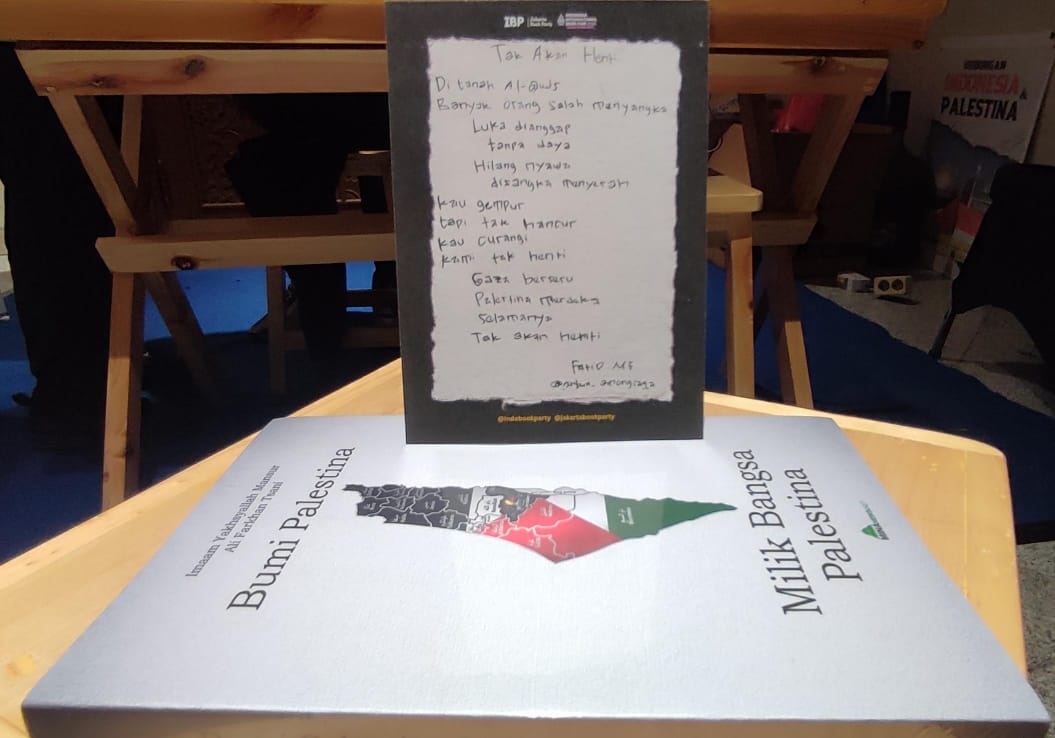 IBP Jakarta Book Party
Tak Akan Henti
Di tanah Al-Quds
Banyak orang salah menyangka
Luka dianggap
tanpa daya
Hilang nyawa
disangka menyerah
kau gempur
tapi tak hancur
kau curangi
kami tak henti
Gaza berseru
Palestina merdeka
Selamanya
Tak akan henti
@indobookparty @jakartabookparty
HUBUNGAN
INDONESIA &
PALESTINA
Imaam Yakhsyallah Mansur
Ali Farkhan Tsani
Bumi Palestina
Milik Bangsa
Palestina